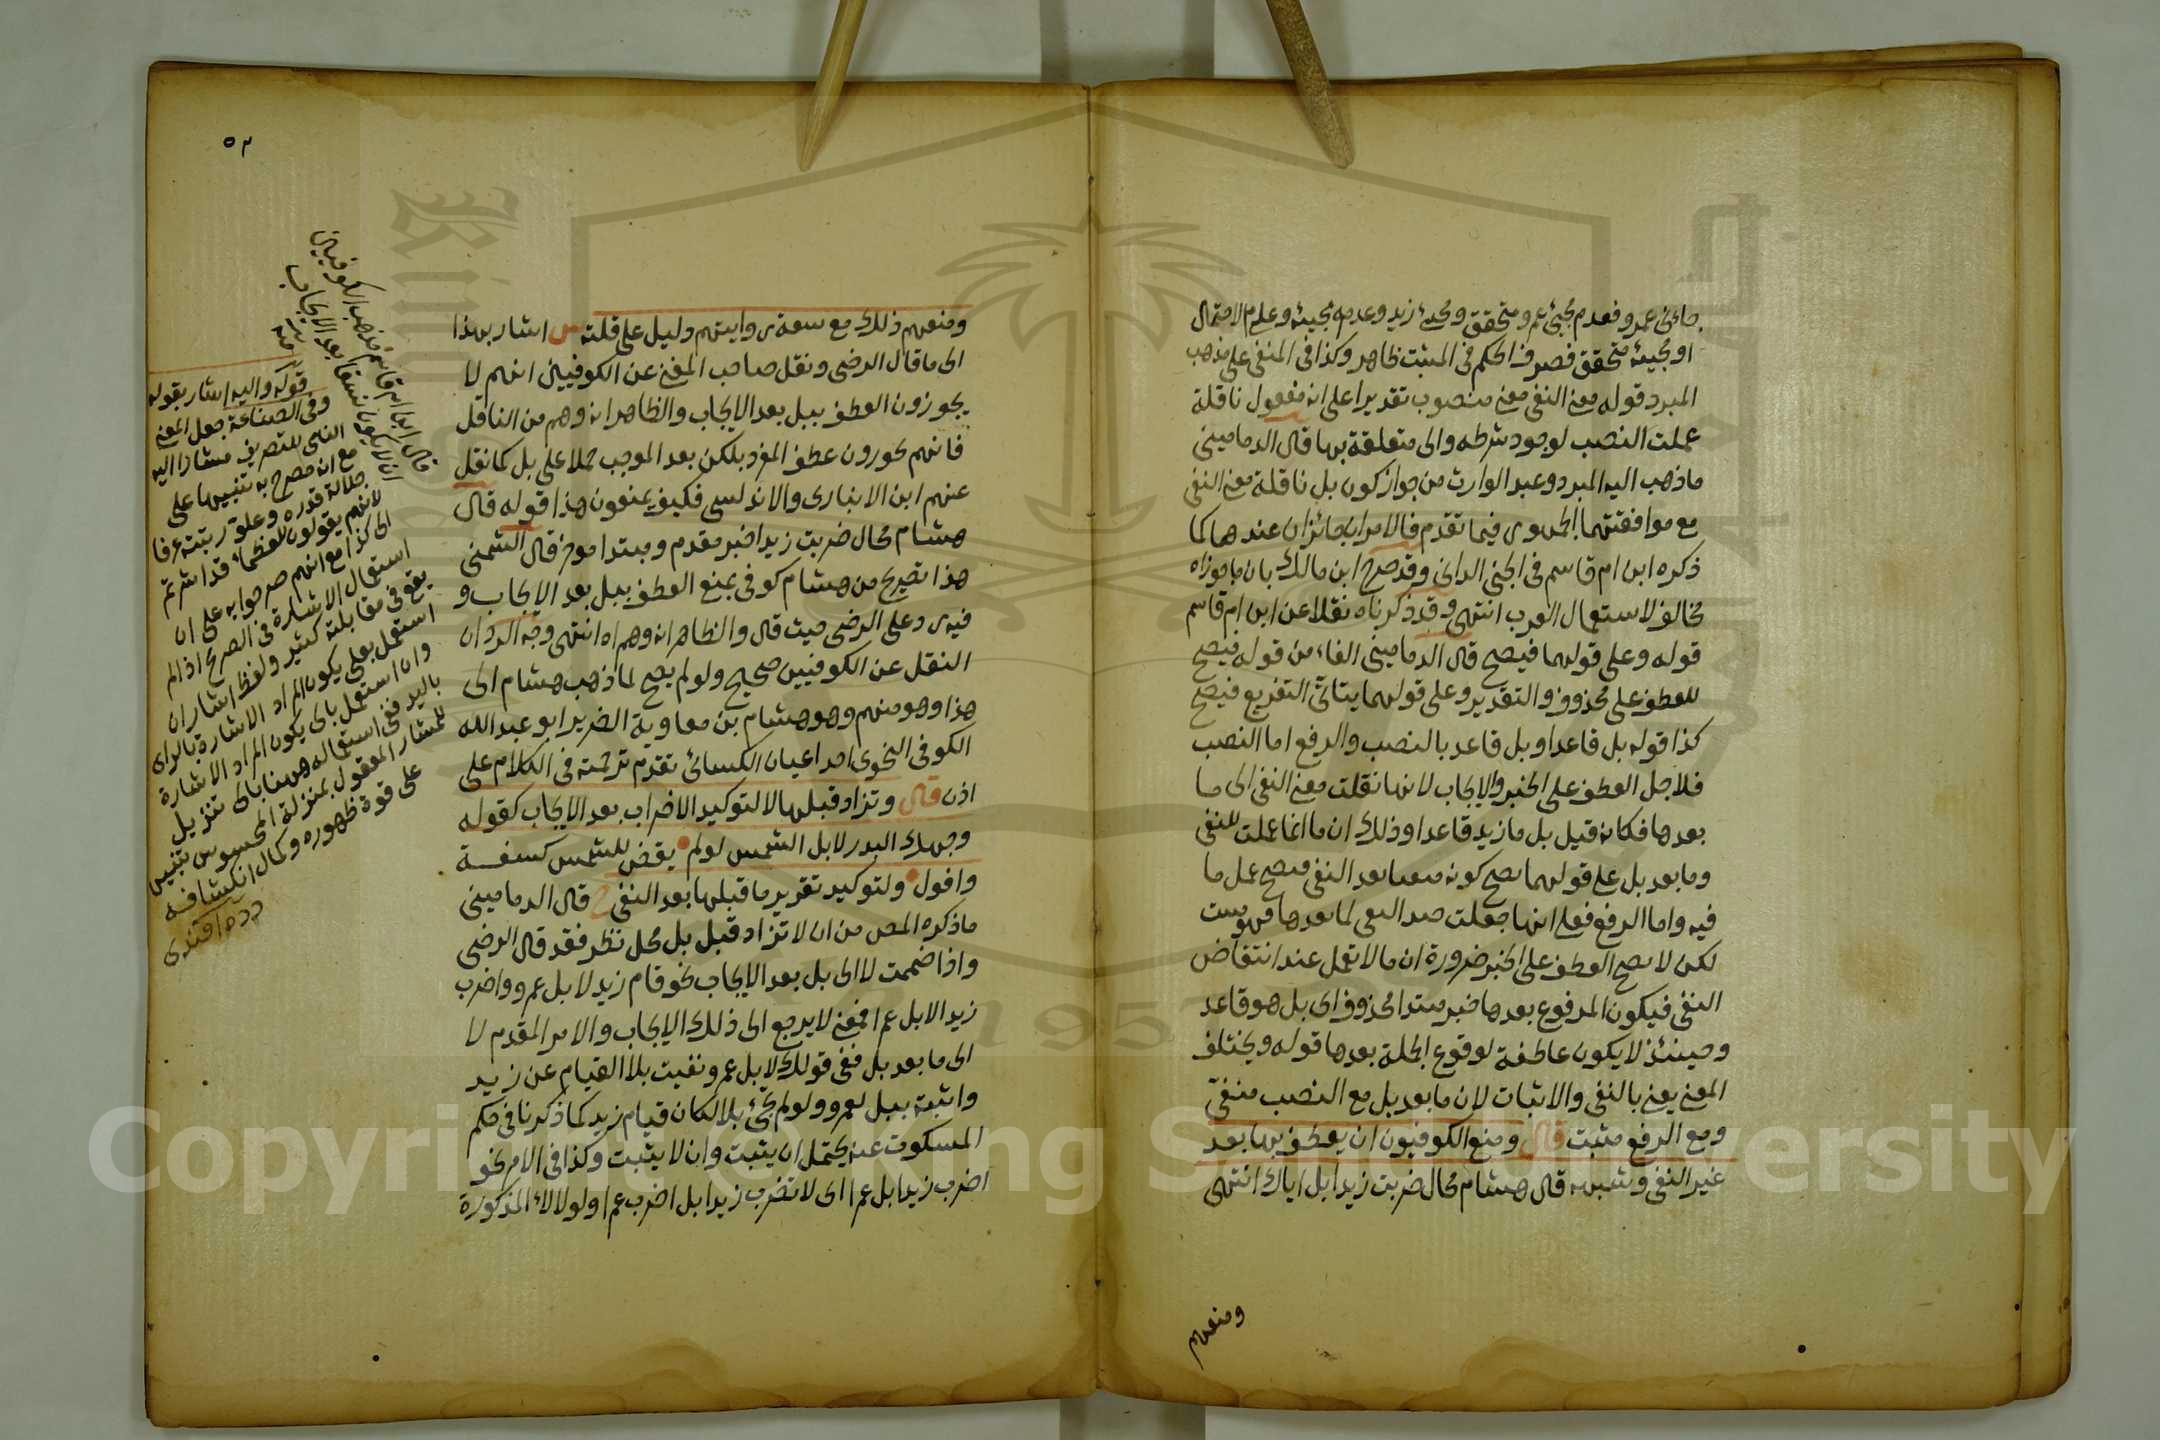 جائنى عمرو فعدم مجيئ عمرو متحقق ومجيئ زيد وعدم مجيئه وعلم الاحتمال
او مجيئه متحقق فصرف الحكم فى المثبت ظاهر وكذا فى المنفى على مذهب
المبرد قوله معنى النفى معنى منصوب تقديرا على انه مفعول ناقلة
عملت النصب لوجود شرطه والى متعلقة بها قال الدمامينى
ماذهب اليه المبرد وعبد الوارث من جواز كون بل ناقلة معنى النفى
مع موافقتهما الجمهور فيما تقدم فالامران جائزان عندهما كما
ذكره ابن ام قاسم فى الجنى الدانى وقد صرح ابن مالك بان ماجوزاه
مخالف لاستعمال العرب انتهى وقد ذكرناه نقلا عن ابن ام قاسم
قوله وعلى قولهما فيصح قال الدمامينى الفاء من قوله فيصح
للعطف على محذوف والتقدير وعلى قولهما يتاتى التفريع فيصح
كذا قوله بل قاعدا وبل قاعد بالنصب والرفع اما النصب
فلاجل العطف على الخبر والايجاب لانها نقلت معنى النفى الى ما
بعدها فكانه قيل بل مازيد قاعدا وذلك ان ما انما عملت للنفى
وما بعد بل على قولهما يصح كونه منفيا بعد النفى فيصح عمل ما
فيه واما الرفع فعلى انها جعلت ضد النفى لما بعدها فهو مثبت
لكن لا يصح العطف على الخبر ضرورة ان ما لا تعمل عند انتقاض
النفى فيكون المرفوع بعدها خبر مبتدا محذوف اى بل هو قاعد
وحينئذ لا يكون عاطفة لوقوع الجملة بعدها قوله ويختلف
المعنى يعنى بالنفى والاثبات لان ما بعد بل مع النصب منفى
ومع الرفع مثبت قال ومنع الكوفيون ان يعطف بها بعد
غير النفى وشبهه قال هشام محال ضربت زيدا بل اياك انتهى
ومنعهم
٥٢
ومنعهم ذلك مع سعة روايتهم دليل على قلته ش اشار بهذا
الى ما قال الرضى ونقل صاحب المغنى عن الكوفيين انهم لا
يجوزون العطف ببل بعد الايجاب والظاهر انه وهم من الناقل
فانهم يجوزون عطف المفرد بلكن بعد الموجب حملا على بل كما نقل
عنهم ابن الانبارى والاندلسى فكيف يمنعون هذا قوله قال
هشام محال ضربت زيدا خبر مقدم ومبتدا موخر قال الشمنى
هذا تصريح من هشام كوفى بمنع العطف ببل بعد الايجاب و
فيه رد على الرضى حيث قال والظاهر انه وهم اه انتهى وجه الرد ان
النقل عن الكوفيين صحيح ولو لم يصح لما ذهب هشام الى
هذا وهو منهم وهو هشام بن معاوية الضرير ابو عبد الله
الكوفى النحوى احد اعيان الكسائى تقدم ترجمته فى الكلام على
اذن قال وتزاد قبلها لا لتوكيد الاضراب بعد الايجاب كقوله
وجهك البدر لا بل الشمس لو لم يقض للشمس كسفة
وافول ولتوكيد تقرير ما قبلها بعد النفى ح قال الدمامينى
ماذكره المص من ان لا تزاد قبل بل محل نظر فقد قال الرضى
واذا ضممت لا الى بل بعد الايجاب نحو قام زيد لا بل عمرو واضرب
زيدا لا بل عمرا فمعنى لا يرجع الى ذلك الايجاب والامر المقدم لا
الى ما بعد بل ففى قولك لا بل عمرو نفيت بلا القيام عن زيد
واثبته ببل لعمرو ولو لم تجئ بلا لكان قيام زيد كما ذكرنا فى حكم
المسكوت عنه يحتمل ان يثبت وان لا يثبت وكذا فى الامر نحو
اضرب زيدا بل عمرا اى لا تضرب زيدا بل اضرب عمرا ولولا لاء المذكورة
قوله واليه اشار بقوله
وفى الصناعة جعل المعنى
مع انه صرح به تنبيها على
جلالة قدره وعلو رتبته عرفا
لانهم يقولون للعظماء قد اشرتم
الى كذا مع انهم صرحوا به على ان
استعمال الاشارة فى الصريح اذا لم
يقع فى مقابلته كثير ولفظ اشار ان
استعمل بعلى يكون المراد الاشارة بالراى
وان استعمل بالى يكون المراد الاشارة
باليد ففى استعماله ههنا بالى تنزيل
للمشار المعقول بمنزلة المحسوس تنبيها
على قوة ظهوره وكمال انكشافه
دده افندى
Copyright © King Saud University
1957